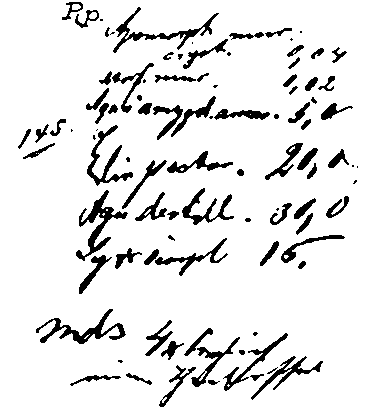 Rp.
Apomorph. mur.
cryst. 0,04
Morf. mur. 0,02
Aqu. amygd. amar. 5,0
145.
Elix pector. 20,0
Aqu destill. 30,0
Syr simpl 15,
mds 4x täglich
einen